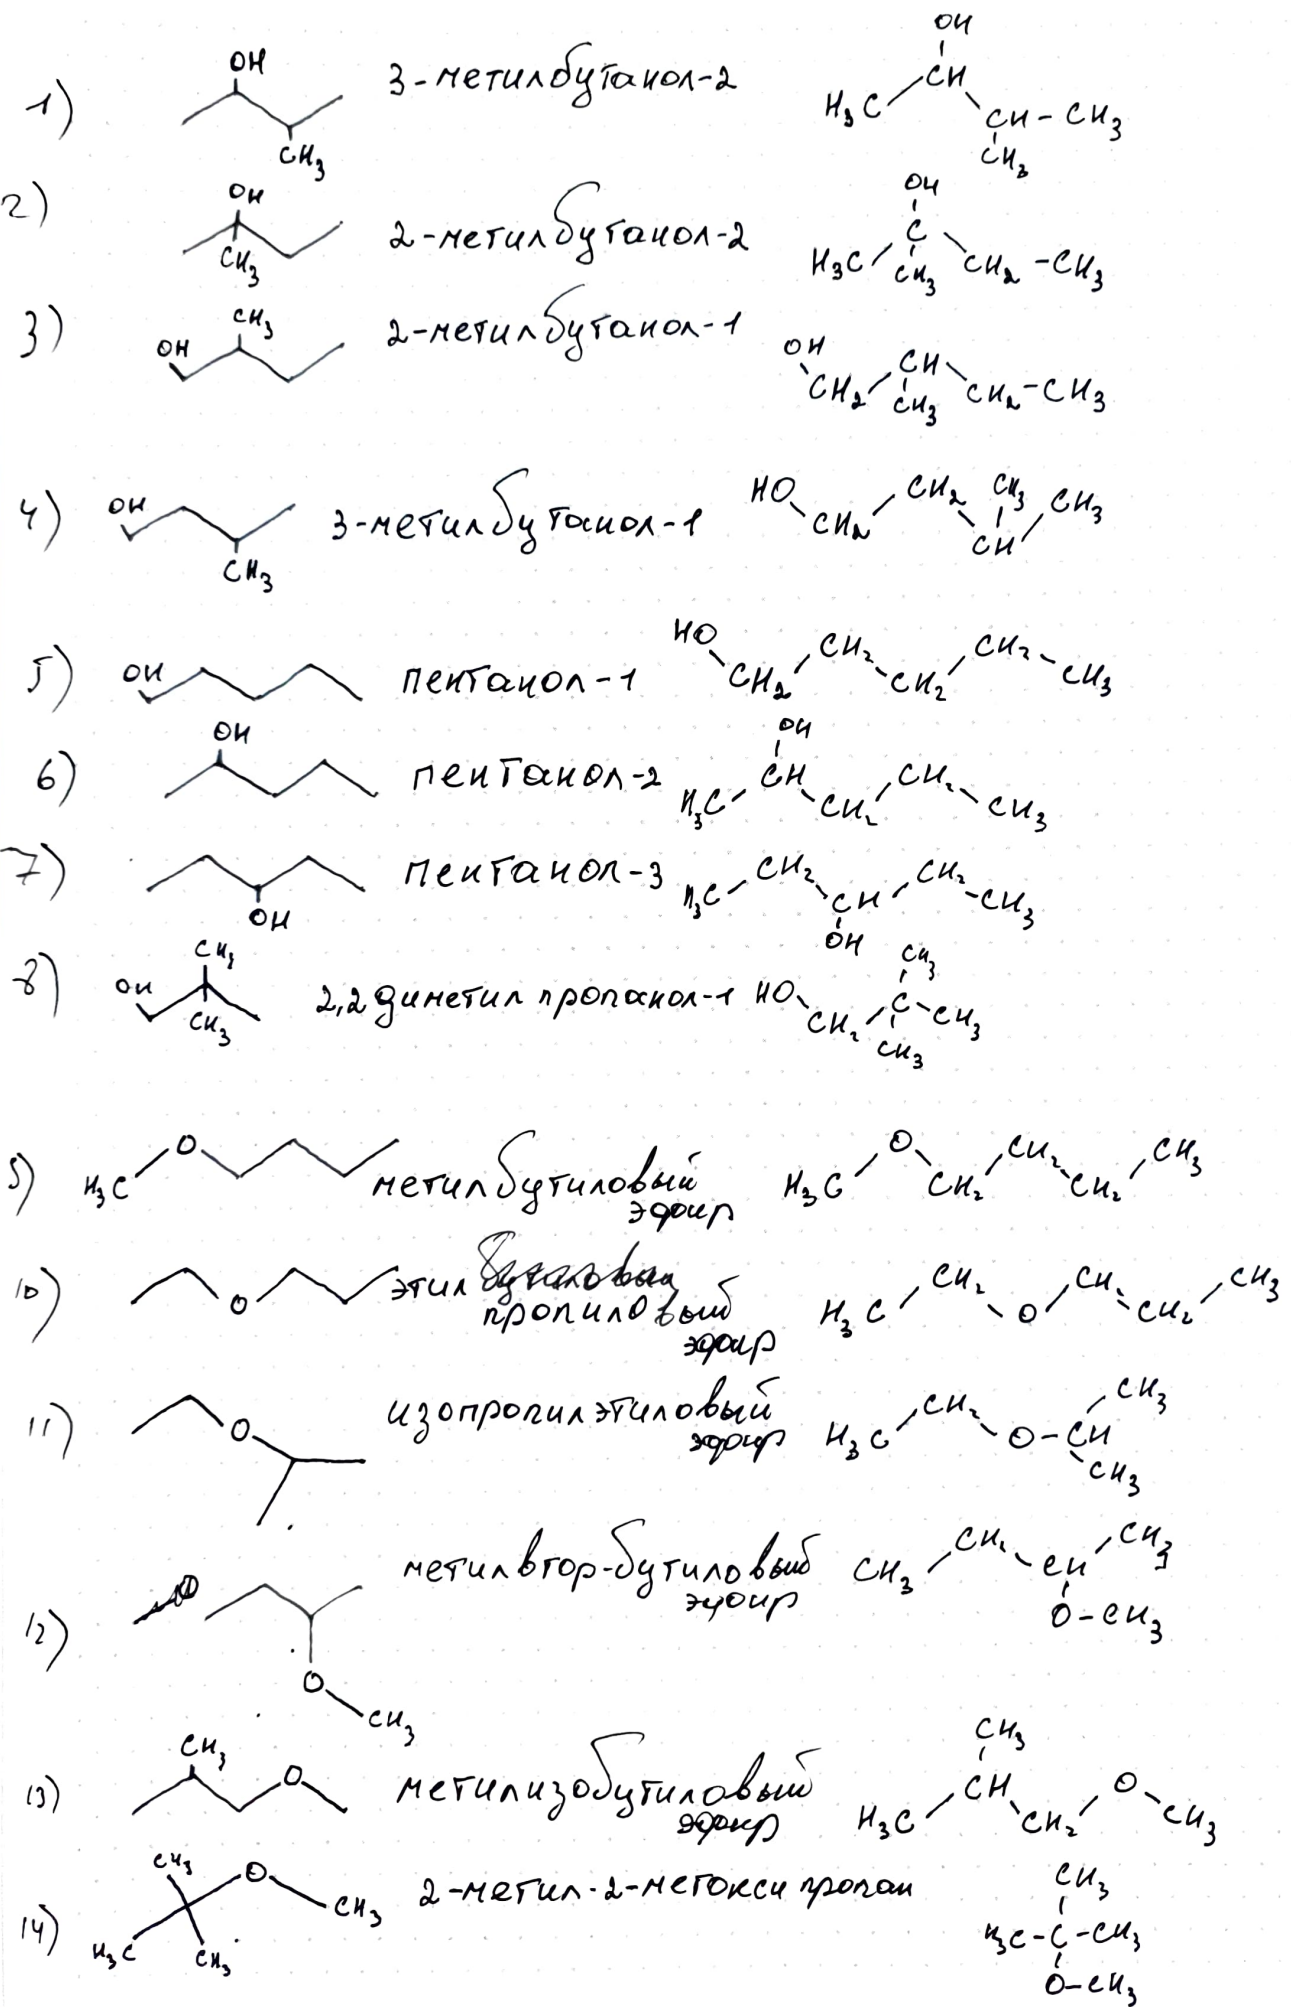 1) OH CH₃ 3-метилбутанол-2 OH CH H₃C CH-CH₃ CH₃
2) OH CH₃ 2-метилбутанол-2 OH C H₃C CH₃ CH₂-CH₃
3) OH CH₃ 2-метилбутанол-1 OH CH₂ CH CH₃ CH₂-CH₃
4) OH CH₃ 3-метилбутанол-1 HO CH₂ CH₂ CH₃ CH CH₃
5) OH пентанол-1 HO CH₂ CH₂ CH₂ CH₂-CH₃
6) OH пентанол-2 OH H₃C CH CH₂ CH₂ CH₃
7) OH пентанол-3 H₃C CH₂ CH OH CH₂ CH₃
8) OH CH₃ CH₃ 2,2 диметил пропанол-1 HO CH₂ C CH₃ CH₃ CH₃
9) H₃C O метилбутиловый H₃C O CH₂ CH₂ CH₂ CH₃
эфир
10) O этил H₃C CH₂ O CH₂ CH₂ CH₃
пропиловый
эфир
11) O изопропилэтиловый H₃C CH₂ O-CH CH₃ CH₃
эфир
12) O CH₃ метилвтор-бутиловый CH₃ CH₂ CH CH₃ O-CH₃
эфир
13) CH₃ O метилизобутиловый H₃C CH CH₃ CH₂ O CH₃
эфир
14) CH₃ O CH₃ H₃C CH₃ 2-метил-2-метокси пропан CH₃ H₃C-C-CH₃ O-CH₃